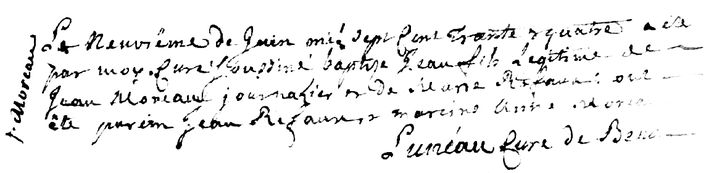 J. Moreau
Le Neuvième de Juin mil sept Cent Trante & quatre a été
par moy Curé Soussiné baptisé Jean fils Légitime de
Jean Moreau journalier et de Marie ont
été parein Jean & mareine Anne Moreau
Puneau Curé de